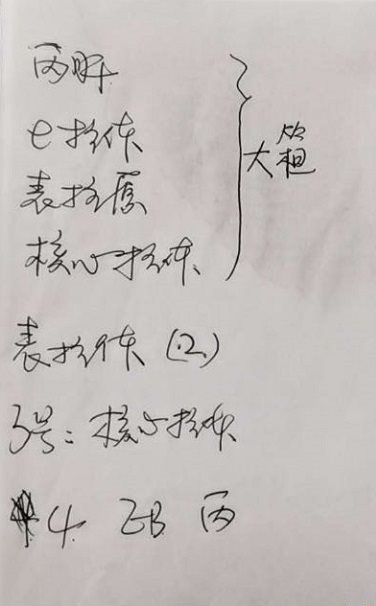 丙肝
e抗体
表抗原
核心抗体
大箱
表抗体 (2)
3号：核心抗体
4 丙